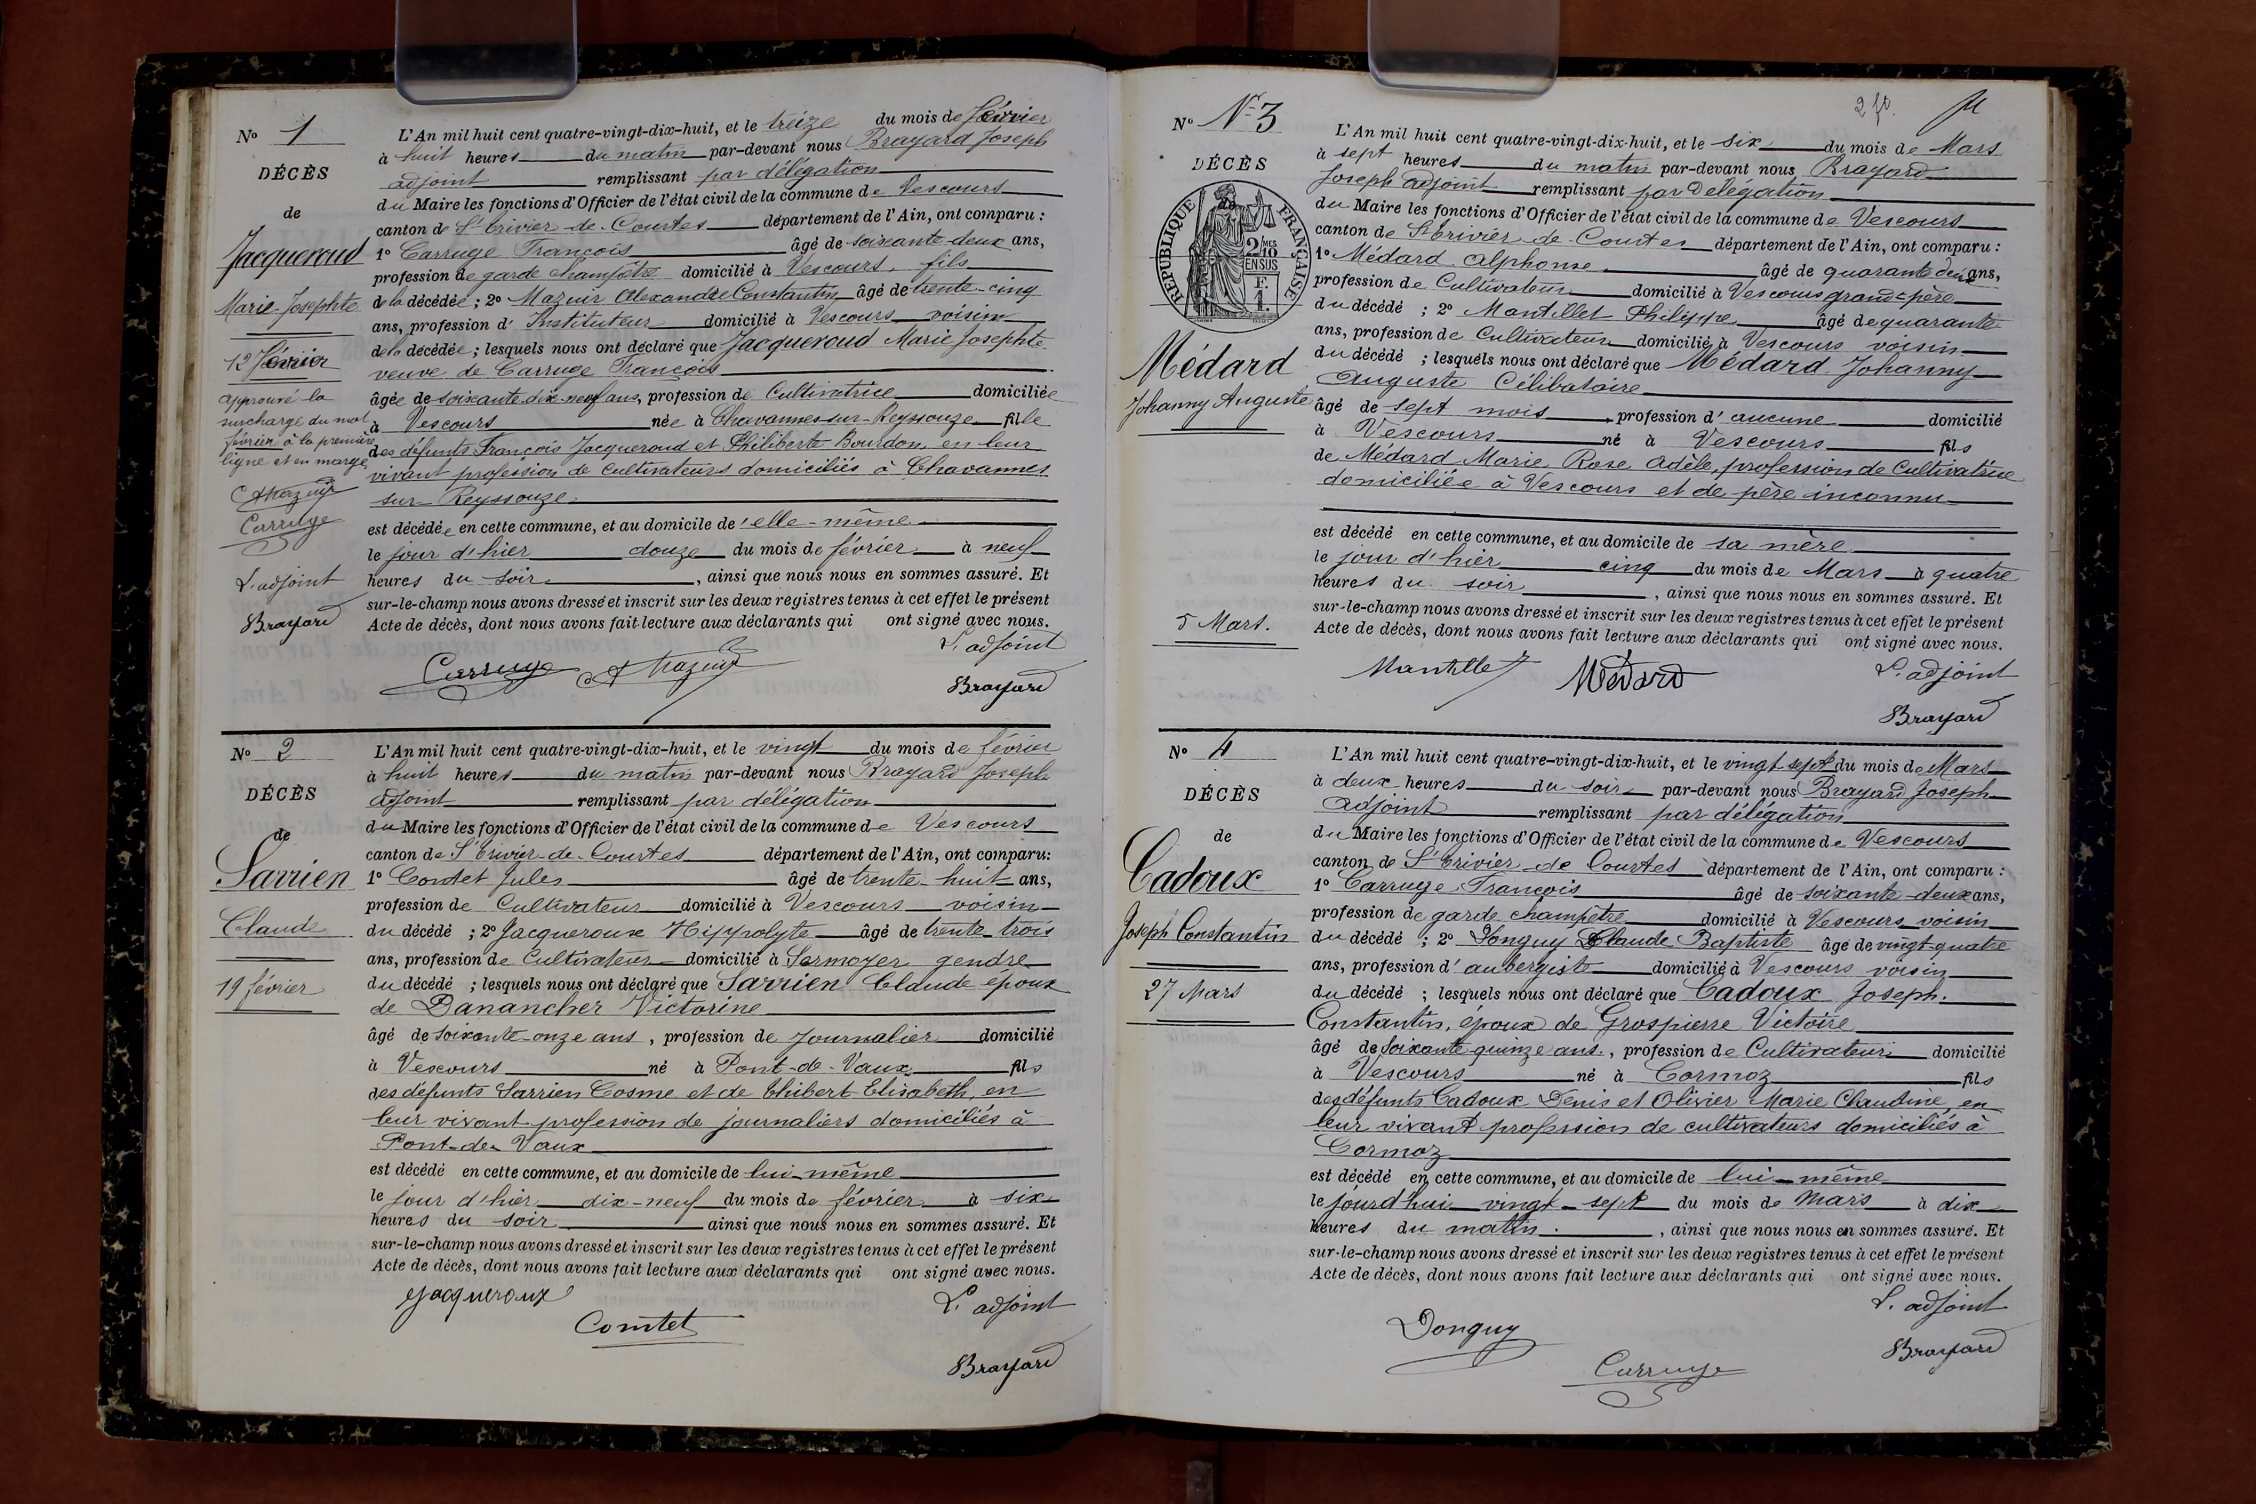 N° 1
DÉCÈS
de
Jacqueroud
Marie-Josephte
12 février
approuvé la
surcharge du mot
février à la première
ligne et en marge
Carruge
L'adjoint
Brayard
L'An mil huit cent quatre-vingt-dix-huit, et le treize du mois de février
à huit heures du matin par-devant nous Brayard Joseph
adjoint remplissant par délégation
du Maire les fonctions d'Officier de l'état civil de la commune de Vescours
canton de St Trivier-de-Courtes département de l'Ain, ont comparu :
1° Carruge François âgé de soixante-deux ans,
profession de garde champêtre domicilié à Vescours, fils
de la décédée ; 2° Mazuir Alexandre Constantin âgé de trente-cinq
ans, profession d'Instituteur domicilié à Vescours voisin
de la décédée ; lesquels nous ont déclaré que Jacqueroud Marie Josephte
veuve de Carruge François
âgée de soixante-dix-neuf ans, profession de Cultivatrice domiciliée
à Vescours née à Chavannes-sur-Reyssouze fille
des défunts François Jacqueroud et Philiberte Bourdon, en leur
vivant profession de cultivateurs domiciliés à Chavannes
sur Reyssouze
est décédée en cette commune, et au domicile de d'elle-même
le jour d'hier douze du mois de février à neuf
heures du soir, ainsi que nous nous en sommes assuré. Et
sur-le-champ nous avons dressé et inscrit sur les deux registres tenus à cet effet le présent
Acte de décès, dont nous avons fait lecture aux déclarants qui ont signé avec nous.
L'adjoint
Carruge A Mazuir
Brayard
N° 2
DÉCÈS
de
Sarrien
Claude
19 février
L'An mil huit cent quatre-vingt-dix-huit, et le vingt du mois de février
à huit heures du matin par-devant nous Brayard Joseph
adjoint remplissant par délégation
du Maire les fonctions d'Officier de l'état civil de la commune de Vescours
canton de St Trivier-de-Courtes département de l'Ain, ont comparu:
1° Comtet Jules âgé de trente-huit ans,
profession de Cultivateur domicilié à Vescours voisin
du décédé ; 2° Jacqueroux Hippolyte âgé de trente-trois
ans, profession de Cultivateur domicilié à Sermoyer gendre
du décédé ; lesquels nous ont déclaré que Sarrien Claude époux
de Danancher Victorine
âgé de soixante-onze ans, profession de Journalier domicilié
à Vescours né à Pont-de-Vaux fils
des défunts Sarrien Cosme et de Thibert Elisabeth, en
leur vivant profession de journaliers domiciliés à
Pont-de-Vaux
est décédé en cette commune, et au domicile de lui-même
le jour d'hier dix-neuf du mois de février à six
heures du soir ainsi que nous nous en sommes assuré. Et
sur-le-champ nous avons dressé et inscrit sur les deux registres tenus à cet effet le présent
Acte de décès, dont nous avons fait lecture aux déclarants qui ont signé avec nous.
Jacqueroux
L'adjoint
Comtet
Brayard
2 fo.
N° N° 3
DÉCÈS
RÉPUBLIQUE FRANÇAISE
2/10 MES
EN SUS
F.
1.
Médard
Johanny Auguste
5 Mars.
L'An mil huit cent quatre-vingt-dix-huit, et le six du mois de Mars
à sept heures du matin par-devant nous Brayard
Joseph adjoint remplissant par Délégation
du Maire les fonctions d'Officier de l'état civil de la commune de Vescours
canton de St Trivier-de-Courtes département de l'Ain, ont comparu :
1° Médard Alphonse âgé de quarante deux ans,
profession de Cultivateur domicilié à Vescours grand-père
du décédé ; 2° Mantillet Philippe âgé de quarante
ans, profession de Cultivateur domicilié à Vescours voisin
du décédé ; lesquels nous ont déclaré que Médard Johanny
Auguste Célibataire
âgé de sept mois profession d'aucune domicilié
à Vescours né à Vescours fils
de Médard Marie Rose Adèle, profession de Cultivatrice
domiciliée à Vescours et de père inconnu
est décédé en cette commune, et au domicile de sa mère
le jour d'hier cinq du mois de Mars à quatre
heures du soir, ainsi que nous nous en sommes assuré. Et
sur-le-champ nous avons dressé et inscrit sur les deux registres tenus à cet effet le présent
Acte de décès, dont nous avons fait lecture aux déclarants qui ont signé avec nous.
Mantillet Médard L'adjoint
Brayard
N° 4
DÉCÈS
de
Cadoux
Joseph Constantin
27 Mars
L'An mil huit cent quatre-vingt-dix-huit, et le vingt-sept du mois de Mars
à deux heures du soir par-devant nous Brayard Joseph
adjoint remplissant par délégation
du Maire les fonctions d'Officier de l'état civil de la commune de Vescours
canton de St Trivier-de Courtes département de l'Ain, ont comparu :
1° Carruge François âgé de soixante-deux ans,
profession de garde champêtre domicilié à Vescours voisin
du décédé ; 2° Donguy Claude Baptiste âgé de vingt-quatre
ans, profession d'aubergiste domicilié à Vescours voisin
du décédé ; lesquels nous ont déclaré que Cadoux Joseph
Constantin, époux de Grospierre Victoire
âgé de soixante-quinze ans, profession de Cultivateur domicilié
à Vescours né à Cormoz fils
des défunts Cadoux Denis et Olivier Marie Claudine en
leur vivant profession de cultivateurs domiciliés à
Cormoz
est décédé en cette commune, et au domicile de lui-même
le jourd'hui vingt-sept du mois de Mars à dix
heures du matin, ainsi que nous nous en sommes assuré. Et
sur-le-champ nous avons dressé et inscrit sur les deux registres tenus à cet effet le présent
Acte de décès, dont nous avons fait lecture aux déclarants qui ont signé avec nous.
L'adjoint
Donguy
Brayard
Carruge